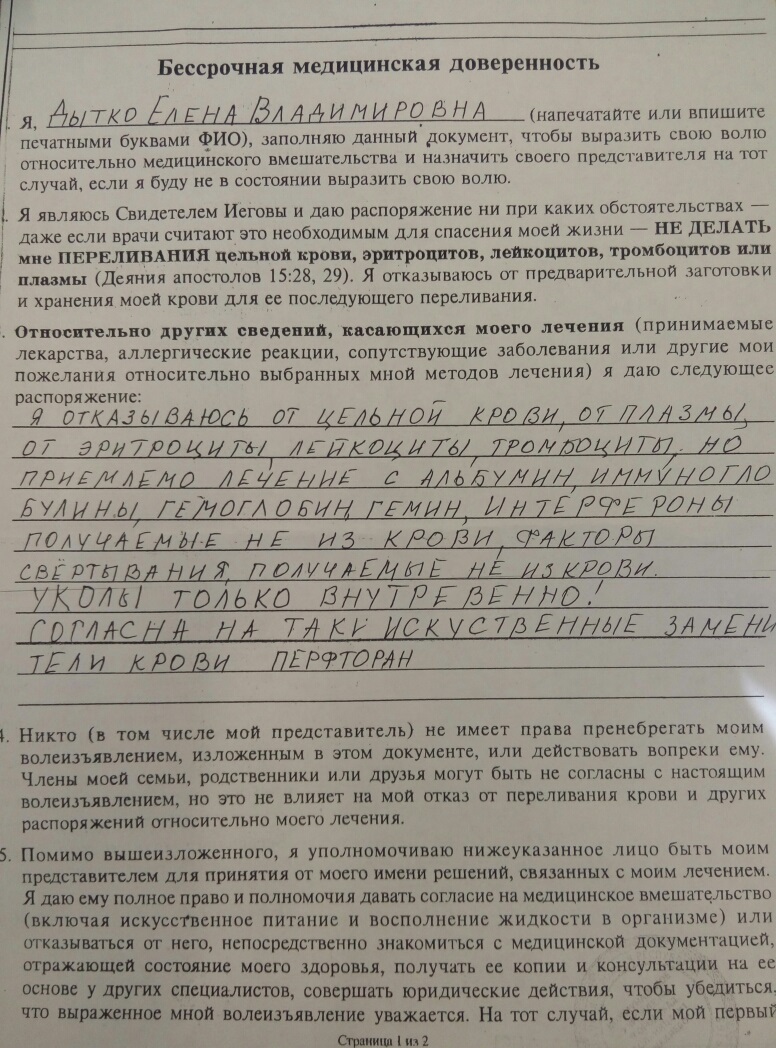 Бессрочная медицинская доверенность
Я, ДЫТКО ЕЛЕНА ВЛАДИМИРОВНА (напечатайте или впишите
печатными буквами ФИО), заполняю данный документ, чтобы выразить свою волю
относительно медицинского вмешательства и назначить своего представителя на тот
случай, если я буду не в состоянии выразить свою волю.
Я являюсь Свидетелем Иеговы и даю распоряжение ни при каких обстоятельствах —
даже если врачи считают это необходимым для спасения моей жизни — НЕ ДЕЛАТЬ
мне ПЕРЕЛИВАНИЯ цельной крови, эритроцитов, лейкоцитов, тромбоцитов или
плазмы (Деяния апостолов 15:28, 29). Я отказываюсь от предварительной заготовки
и хранения моей крови для ее последующего переливания.
Относительно других сведений, касающихся моего лечения (принимаемые
лекарства, аллергические реакции, сопутствующие заболевания или другие мои
пожелания относительно выбранных мной методов лечения) я даю следующее
распоряжение:
Я ОТКАЗЫВАЮСЬ ОТ ЦЕЛЬНОЙ КРОВИ, ОТ ПЛАЗМЫ,
ОТ ЭРИТРОЦИТЫ, ЛЕЙКОЦИТЫ, ТРОМБОЦИТЫ. НО
ПРИЕМЛЕМО ЛЕЧЕНИЕ С АЛЬБУМИН, ИММУНОГЛО
БУЛИНЫ, ГЕМОГЛОБИН, ГЕМИН, ИНТЕРФЕРОНЫ
ПОЛУЧАЕМЫЕ НЕ ИЗ КРОВИ, ФАКТОРЫ
СВЁРТЫВАНИЯ, ПОЛУЧАЕМЫЕ НЕ ИЗ КРОВИ.
УКОЛЫ ТОЛЬКО ВНУТРЕВЕННО!
СОГЛАСНА НА ТАКИ ИСКУСТВЕННЫЕ ЗАМЕНИ
ТЕЛИ КРОВИ ПЕРФТОРАН
4. Никто (в том числе мой представитель) не имеет права пренебрегать моим
волеизъявлением, изложенным в этом документе, или действовать вопреки ему.
Члены моей семьи, родственники или друзья могут быть не согласны с настоящим
волеизъявлением, но это не влияет на мой отказ от переливания крови и других
распоряжений относительно моего лечения.
5. Помимо вышеизложенного, я уполномочиваю нижеуказанное лицо быть моим
представителем для принятия от моего имени решений, связанных с моим лечением.
Я даю ему полное право и полномочия давать согласие на медицинское вмешательство
(включая искусственное питание и восполнение жидкости в организме) или
отказываться от него, непосредственно знакомиться с медицинской документацией,
отражающей состояние моего здоровья, получать ее копии и консультации на ее
основе у других специалистов, совершать юридические действия, чтобы убедиться,
что выраженное мной волеизъявление уважается. На тот случай, если мой первый
Страница 1 из 2